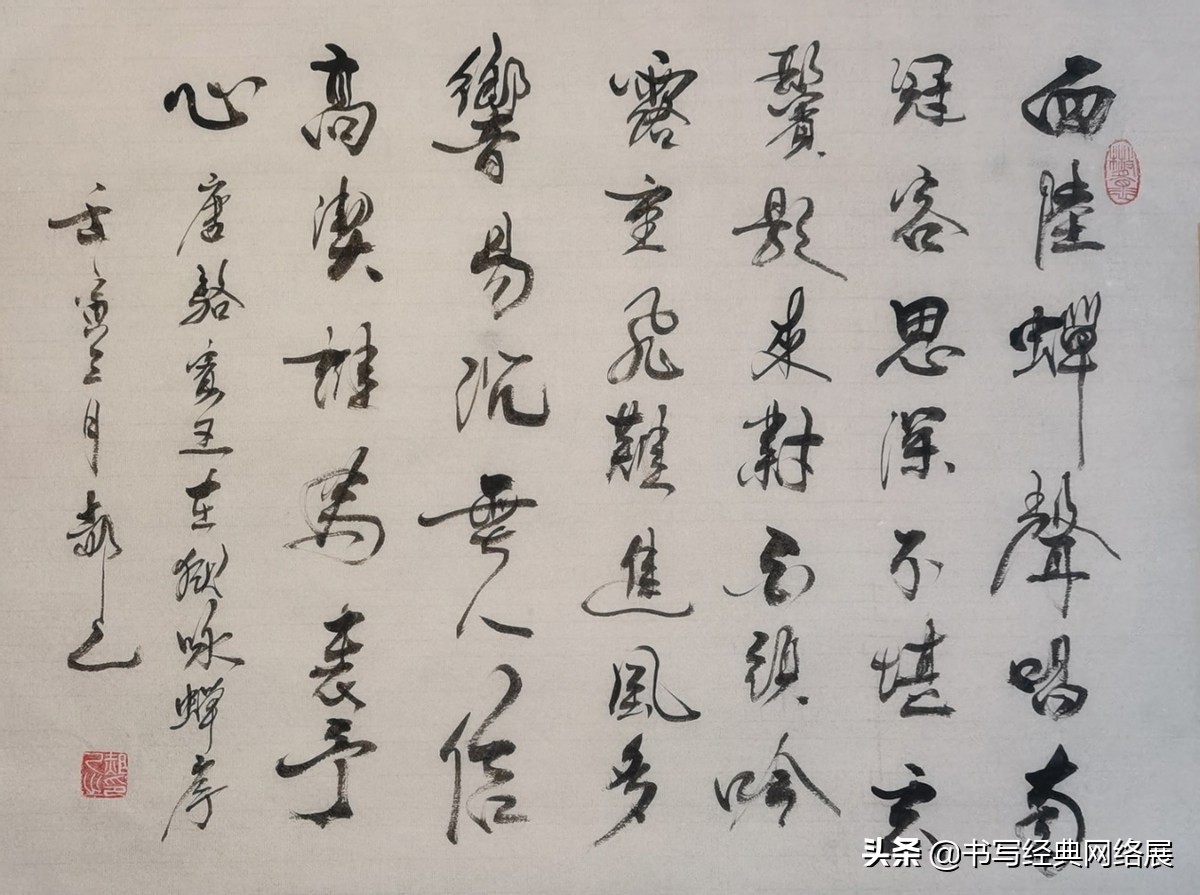 西陸蟬聲唱南
冠客思深不堪玄
鬢影來對白頭吟
露重飛難進風多
響易沉無人信
高潔誰為表予
心 唐駱賓王在獄咏蟬序
壬寅三月
头条 @书写经典网络展